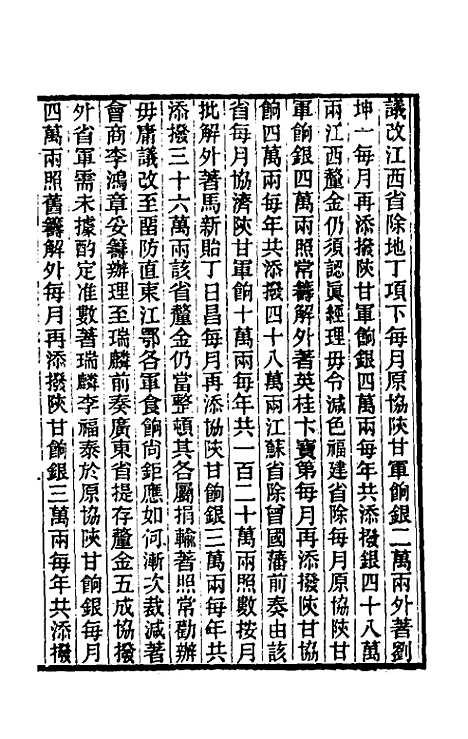 議改江西省除地丁項下每月原協陝甘軍餉銀二萬兩外著劉
坤一每月再添撥陝甘軍餉銀四萬兩每年共添撥銀四十八萬
兩江西釐金仍須認眞經理毋令減色福建省除每月原協陝甘
軍餉銀四萬兩照常籌解外著英桂卞寶第每月再添撥陝甘協
餉四萬兩每年共添撥四十八萬兩江蘇省除曾國藩前奏由該
省每月協濟陝甘軍餉十萬兩每年共一百二十萬兩照數按月
批解外著馬新貽丁日昌每月再添協陝甘餉銀三萬兩每年共
添撥三十六萬兩該省釐金仍當整頓其各屬捐輸著照常勸辦
毋庸議改至留防直東江鄂各軍食餉尚鉅應如何漸次裁減著
會商李鴻章妥籌辦理至瑞麟前奏廣東省提存釐金五成協撥
外省軍需未據酌定准數著瑞麟李福泰於原協陝甘餉銀每月
四萬兩照舊籌解外每月再添撥陝甘餉銀三萬兩每年共添撥